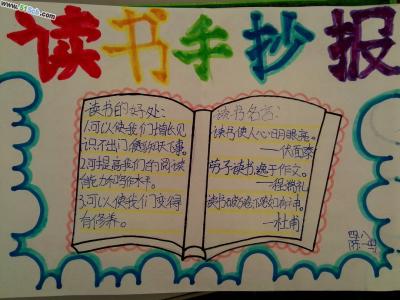 www.61ook.com
读书手抄报
读书的好处:
1.可以使我们增长见
识不出门便知天下事。
2.可提高我们的阅读
能力和写作水平。
3.可以使我们变得
有修养。
读书名言:
读书使人心明眼亮。
——伏尔泰
劳于读书逸于作文。
——程端礼
读书破万卷下笔如有神。
—杜甫